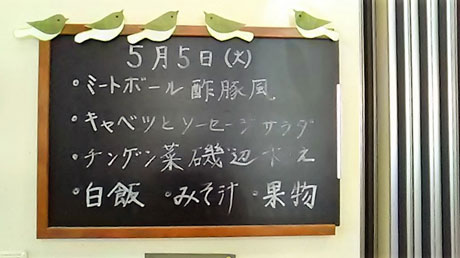 5月5日(火)
・ミートボール酢豚風
・キャベツとソーセージサラダ
・チンゲン菜磯辺え
・白飯 ・みそ汁 ・果物